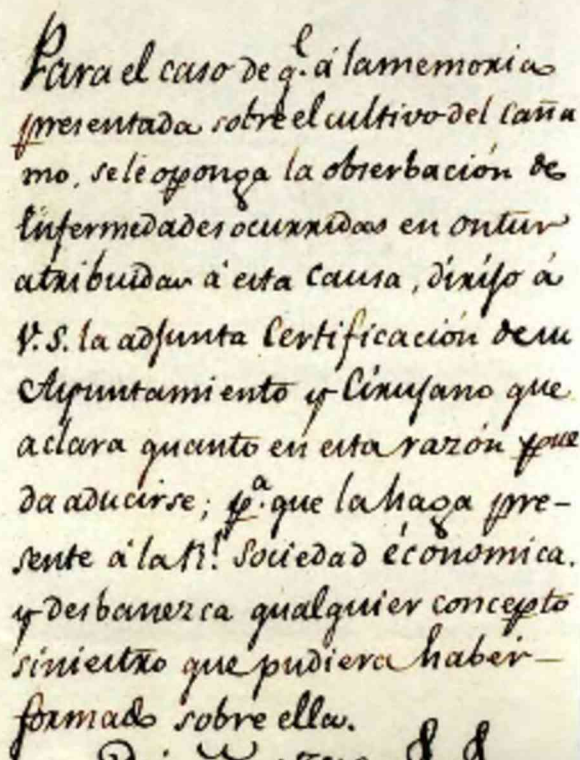 Para el caso de q.e á la memoria
presentada sobre el cultivo del Caña
mo, se le oponga la obserbación de
Enfermedades ocurridas en ontur
atribuidas á esta Causa, dirijo á
V. S. la adjunta Certificación de su
Ayuntamiento y Cirujano que
aclara quanto en esta razón pue
da aducirse; p.a que la haga pre-
sente á la R.l Sociedad économica.
y desbanezca qualquier concepto
siniestro que pudiera haber-
formado sobre ella.